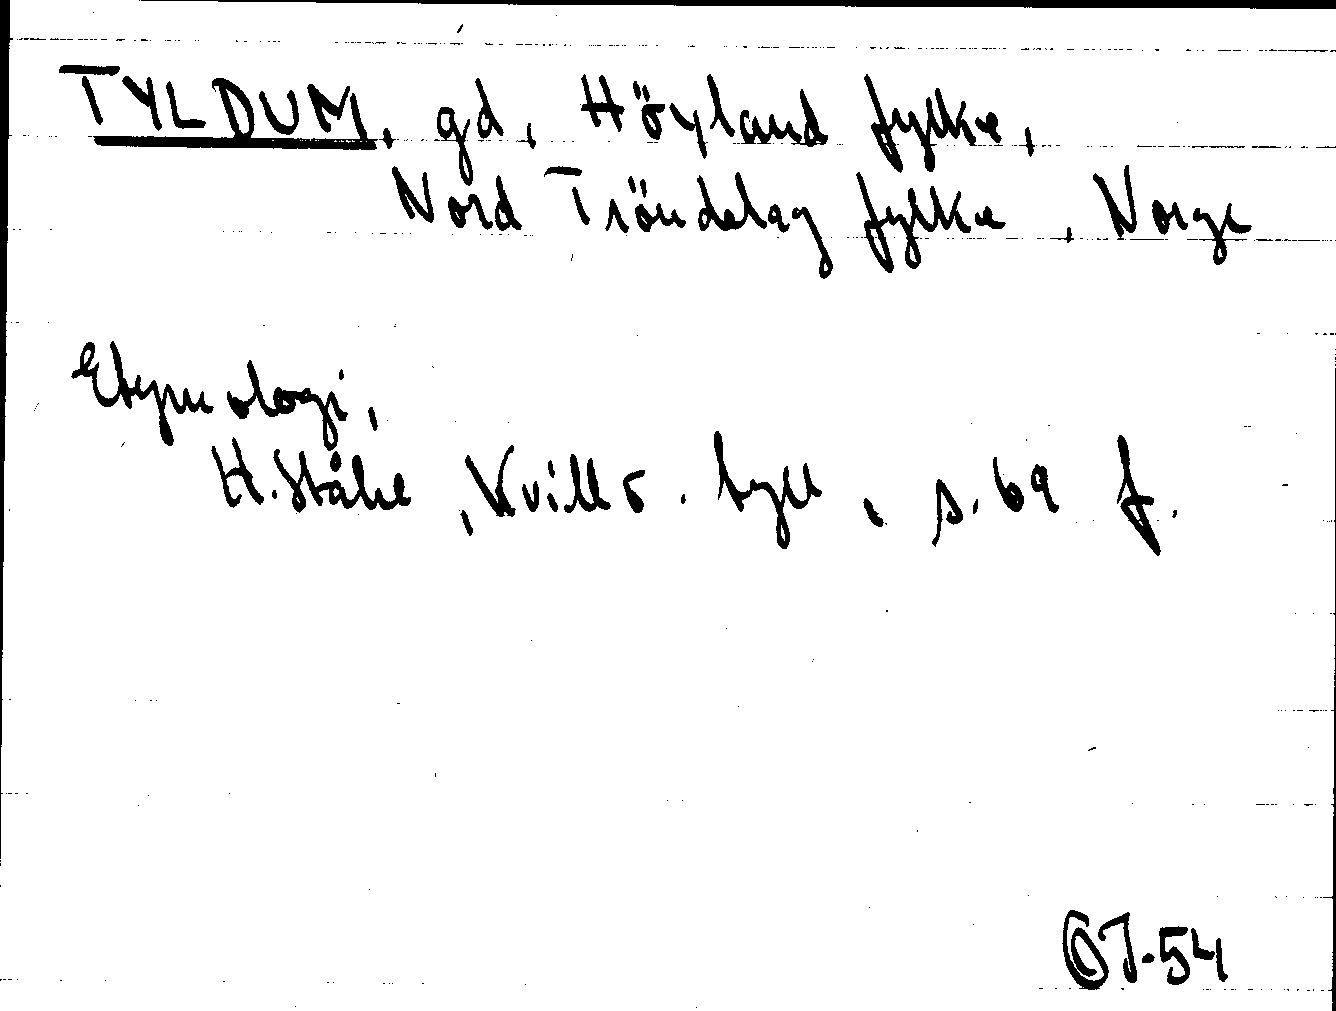 TYLDUM, gd, Höyland fylke,
Nord Tröndelag fylke, Norge
Etymologi,
H. Ståhl, Kvill o. tyll, s. 69 f.
OJ-54